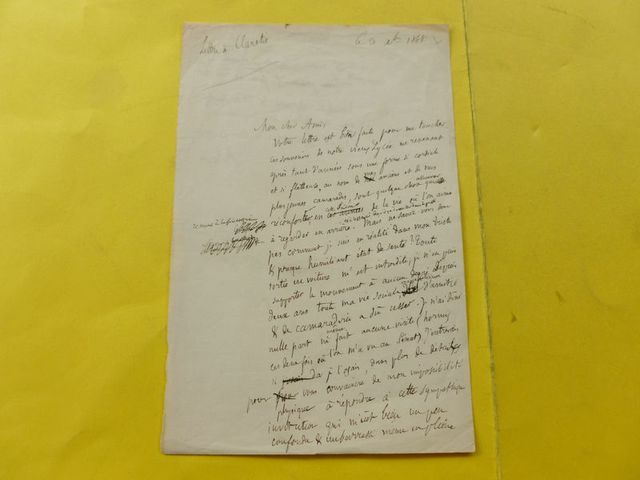 Lettre à Claretie
le 8 1868
Mon cher Ami,
Votre lettre est bien faite pour me toucher
ces souvenirs de notre vieux Lycée me revenant
après tant d'années sous une forme si cordiale
et si flatteuse, au nom de mes anciens et de vos
plus jeunes camarades, sont quelque chose
reconfortés en de la vie où l'on aime
à regarder en arrière. Mais ne savez vous donc
pas comment je suis en réalité dans mon triste
& presque humiliant état de santé ? Toute
sortie en voiture m'est interdite, je n'en puis
supporter le mouvement à aucun degré. Depuis
deux ans toute ma vie sociale d'amitié
& de camaraderie a dû cesser. Je n'ai dîné
nulle part ni même fait aucune visite (hormis
ces deux fois où l'on m'a vu au Sénat)
si j'osais, dans plus de détails
pour vous convaincre de mon impossibilité
physique à répondre à cette sympathique
invitation qui m'est bien un peu
confondu & embarrassé même en pleine